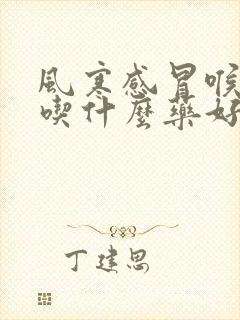 風寒感冒喉
喫什麼藥好
丁建思